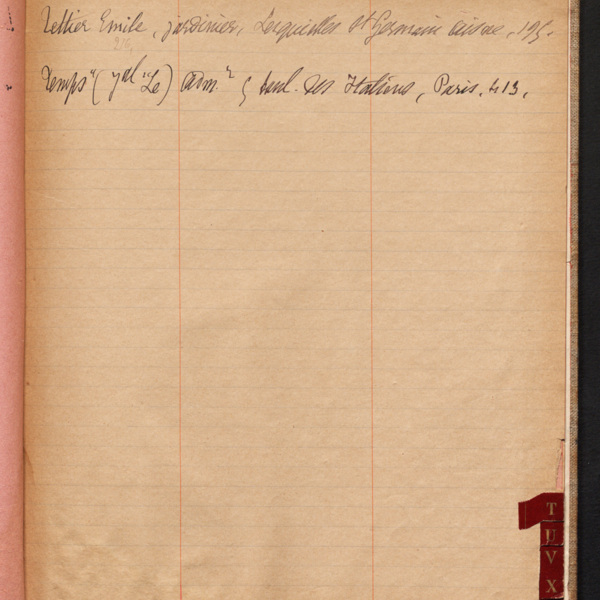 Tellier Emile, jardinier, Lesquielles St Germain Aisne, 195.
Temps" (Jal "Le) Adm.on 5 boul. des Italiens, Paris. 413.
T
U
V
X